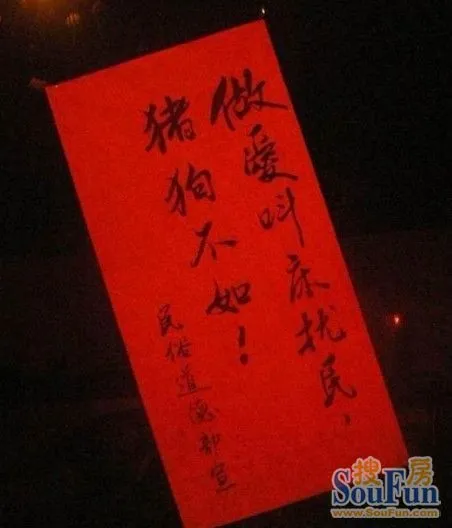 做爱叫床扰民，
猪狗不如！
民俗道德部宣
搜房
SouFun
www.SouFun.com